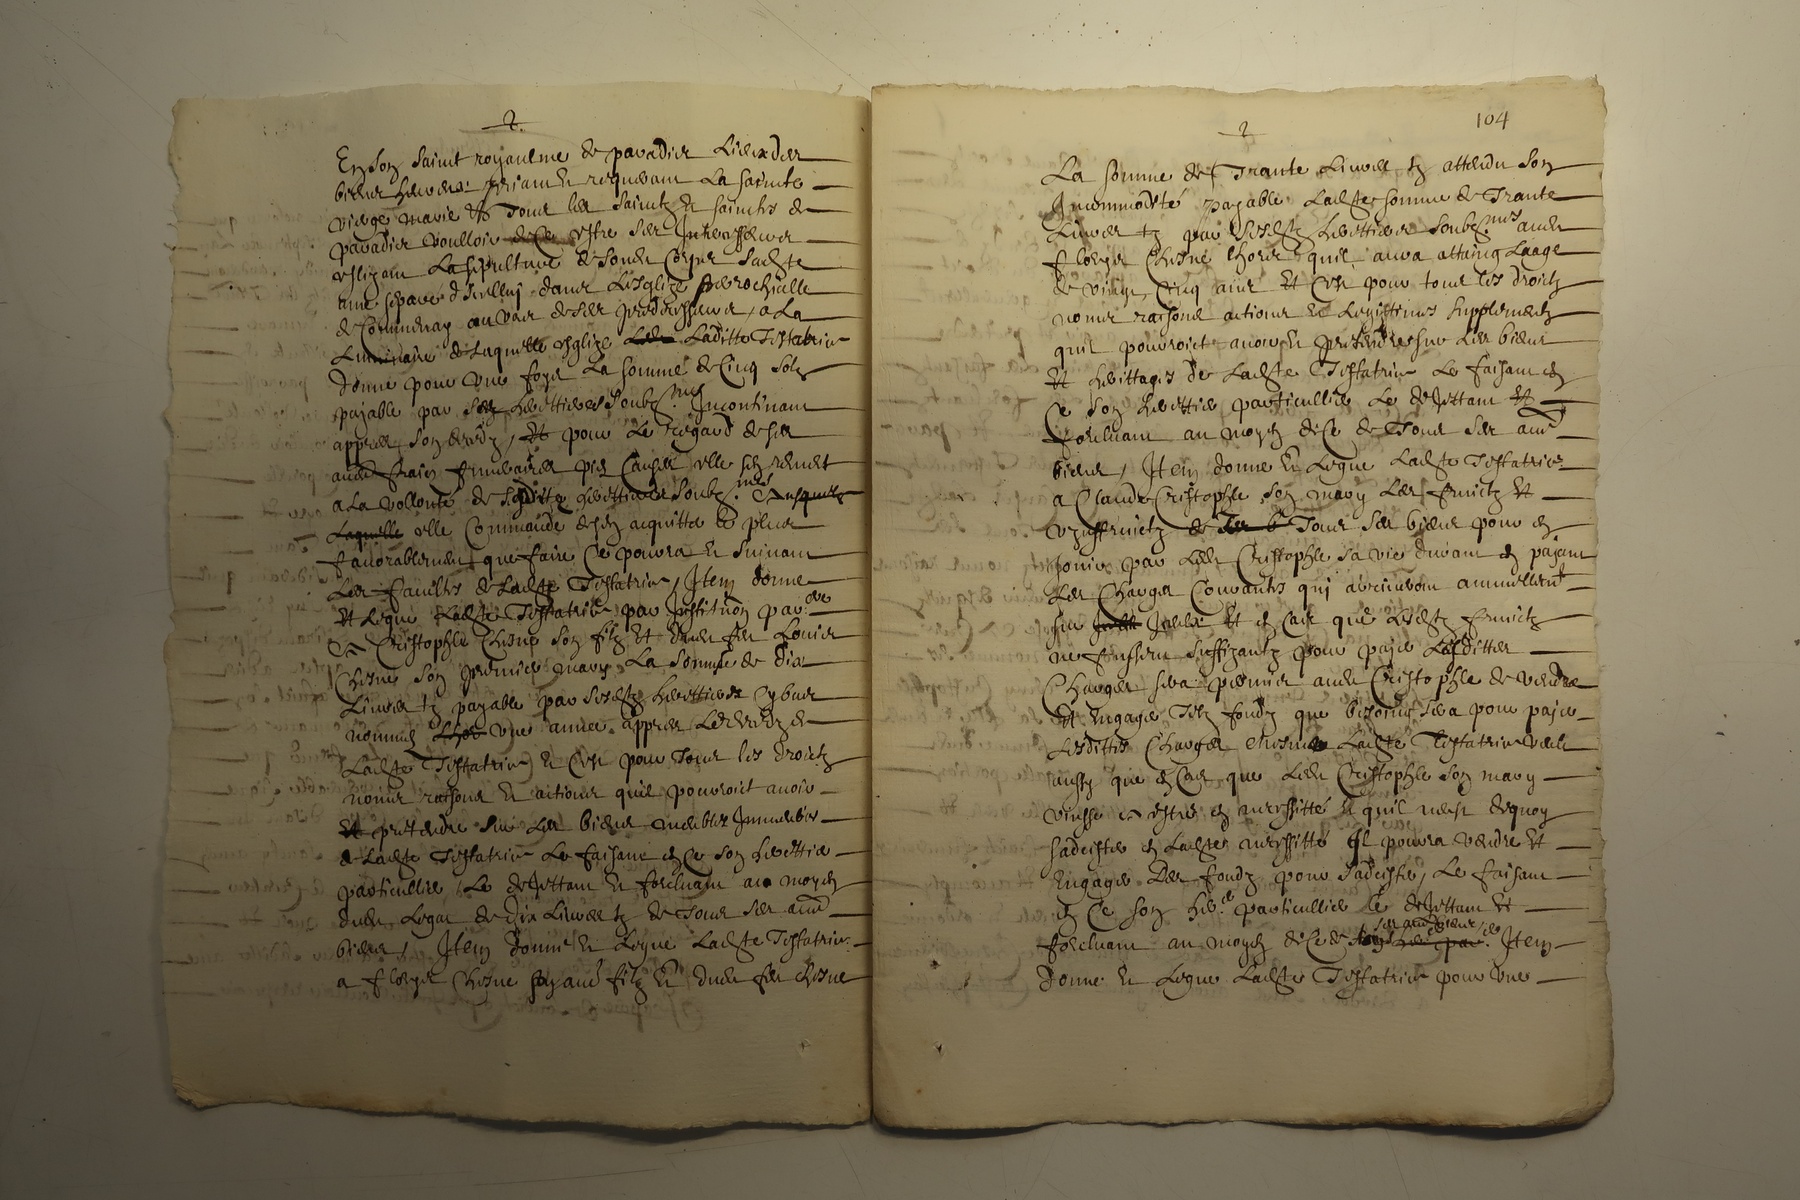 2.
En son sainct royaulme de paradis Lieu des
bien heureux priant et requerant La saincte
vierge marie et tous les sainctz et sainctes de
paradis voulloir estre ses Intersesseurs
eslizant La sepulture de sondict Corps sadicte
ame separé d'Icelluy dans L'esglize parrochielle
de Commenay au vas de ses predecesseurs, a La
Luminaire de Laquelle esglize Laditte Testatrix
donne pour une foys La somme de Cinq solz
payable par ses herettiers soubz.nes Incontinant
appres son deredz, Et pour Le regard de ses
aud. fraiz funeraires pies Causes elle sen remet
a La vollonté de sesditz herettiers soubz.nes Ausquelz
Laquelle elle Commande de sen acquitter Le plus
favorablement que faire Ce pourra et suivant
Les facultes de Ladite Testatrix, Item donne
Et Legue Ladite Testatrix par Institution par.re
A Cristophle Chesne son filz Et dudict feu Lonies
Chesne son premier mary La somme de dix
Livres tz payable par sesditz herettiers Cy bas
nommes une année appres Le deredz de
Ladite Testatrix et C'est pour Tous les droictz
noms raisons et actions quil pourroict avoir
Et pretendre sur Les biens meubles Immeubles
de Ladite Testatrix Le faisant en Ce son herettier
particullier Le dejettant et forcluant au moyen
dudict Legat de dix Livres tz de Tous ses aud.
biens, Item donne et Legue Ladite Testatrix
a florys Chesne son aud. filz Et dudict feu Chesne
2
104
La somme de Trante Livres tz attendu son
Incommodité payable Ladite somme de Trante
Livres tz par sesditz herettiers soubz.nes audict
florys Chesne Lhors quil aura attainct Laage
de vingt Cinq ans Et C'est pour tous les droictz
noms raisons actions et Legittimes supplementz
quil pourroict avoir et pretendre sur Les biens
Et herittages de Ladite Testatrix Le faisant en
Ce son herettier particullier Le dejettant Et
forcluant au moyen de Ce de Tous ses aud.
biens, Item donne Et Legue Ladite Testatrix
a Claude Cristophle son mary Les fruictz Et
uzuffruictz de Tous ses biens pour en
Jouir par Ledict Cristophle sa vie durant en payant
Les Charges Courantes qui arriveront annuellem.t
sur Iceux Et en Cas que Lesditz fruictz
ne fussent suffizantz pour payer Lesdittes
Charges sera permis audict Cristophle de vendre
Et Engager Telz fondz que besoing sera pour payer
Lesdittes Charges Mesmes Ladite Testatrix veult
aussy que en Cas que Ledict Cristophle son mary
vinsse A estre en necessitté et quil n'eust de quoy
s'adcister en Ladite necessitté Il pourra vendre Et
Engager Des fondz pour s'adcister, Le faisant
en Ce son her.er particullier le dejettant Et
forcluant au moyen de Ce de ses aud. biens Item
donne et Legue Ladite Testatrix pour une